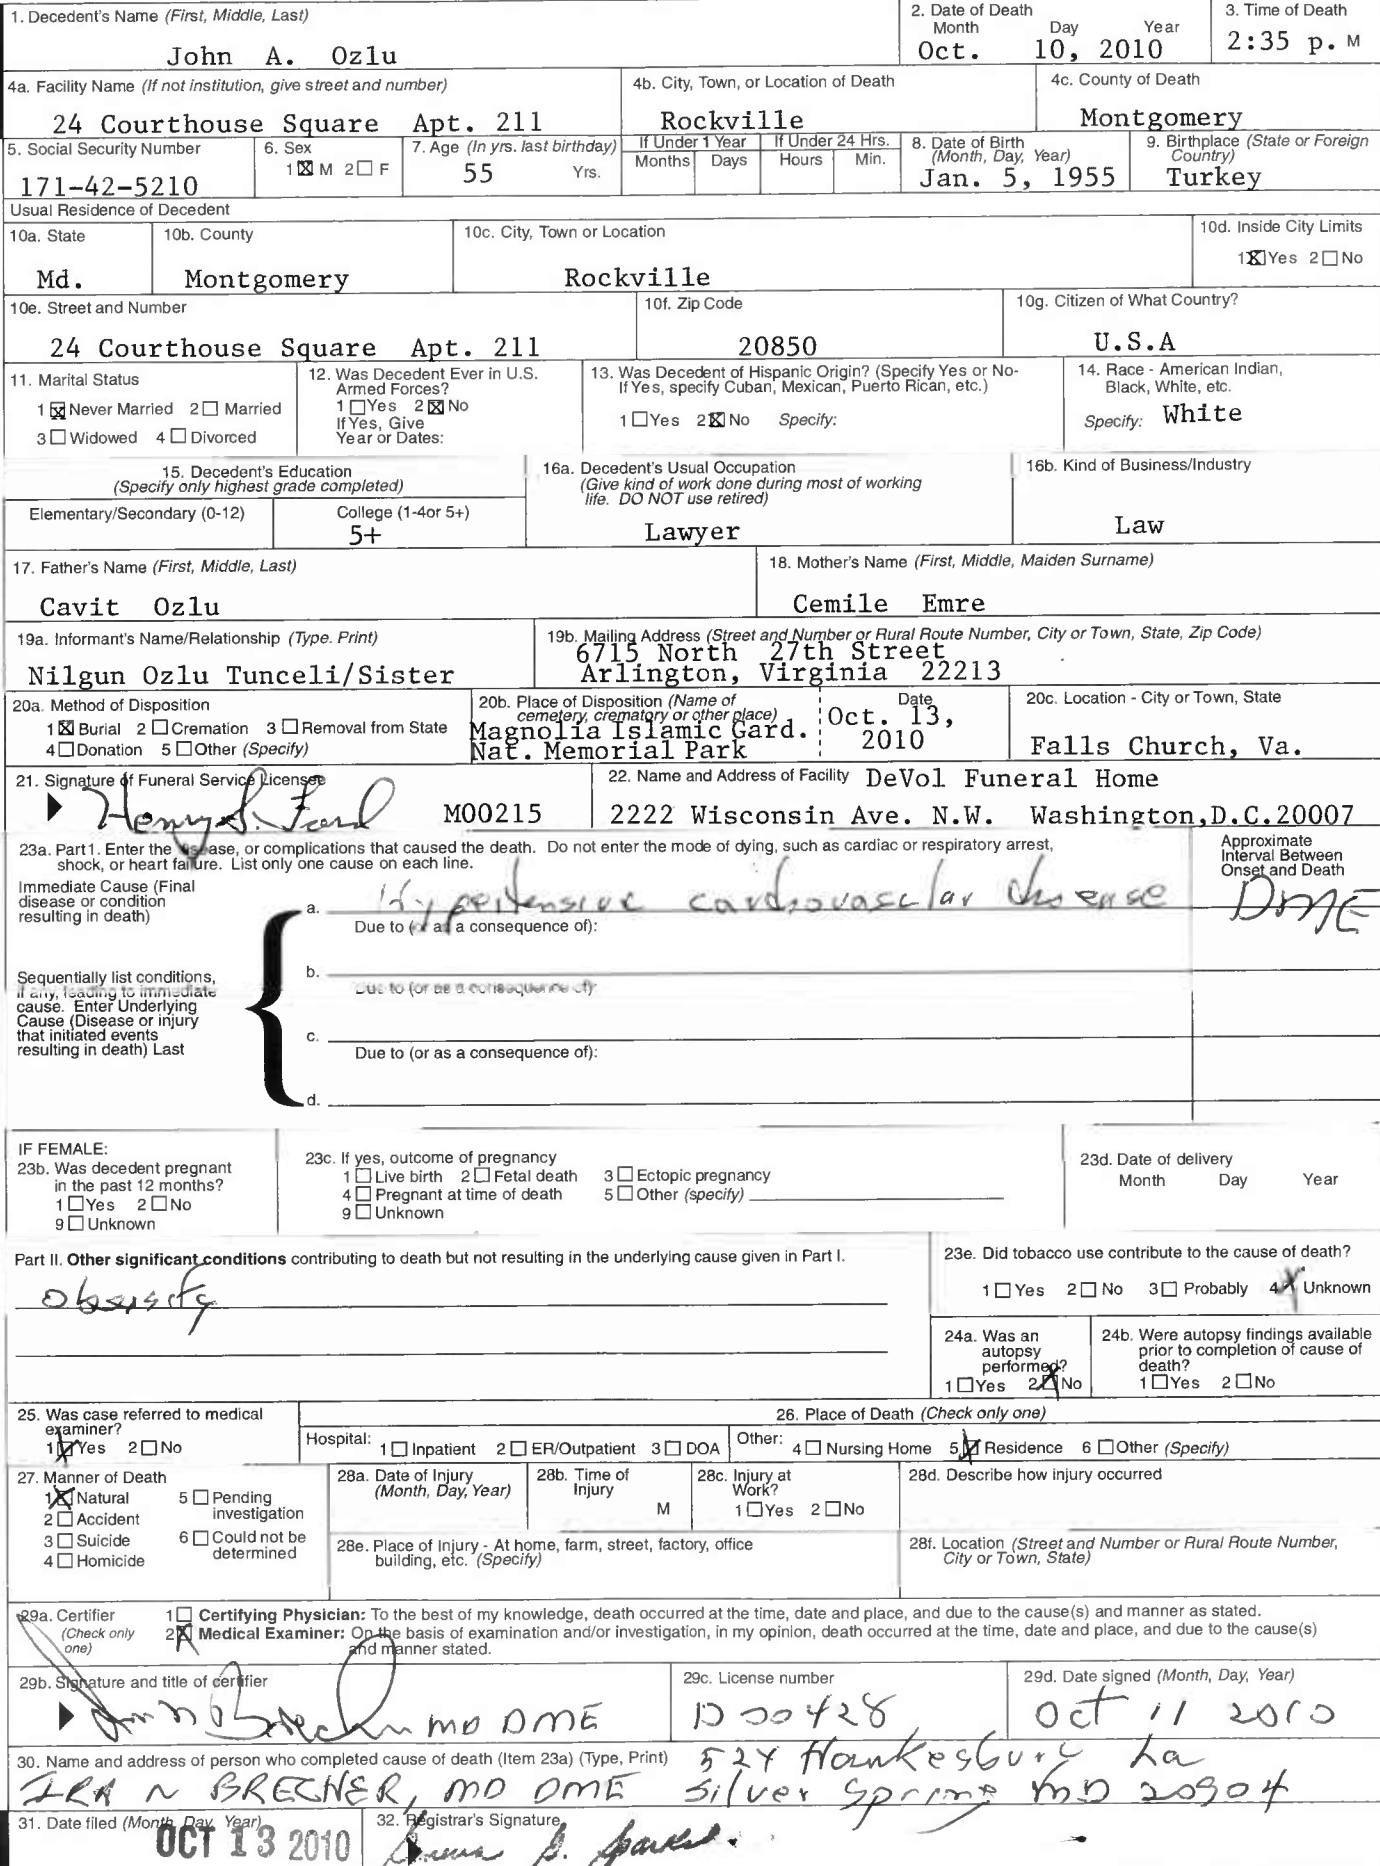 1. Decedent's Name (First, Middle, Last)
John A. Ozlu
2. Date of Death
Month Day Year
Oct. 10, 2010
3. Time of Death
2:35 p. M
4a. Facility Name (If not institution, give street and number)
24 Courthouse Square Apt. 211
4b. City, Town, or Location of Death
Rockville
4c. County of Death
Montgomery
5. Social Security Number
171-42-5210
6. Sex
1 ☒ M 2 ☐ F
7. Age (In yrs. last birthday)
55 Yrs.
If Under 1 Year
Months Days
If Under 24 Hrs.
Hours Min.
8. Date of Birth
(Month, Day, Year)
Jan. 5, 1955
9. Birthplace (State or Foreign
Country)
Turkey
Usual Residence of Decedent
10a. State
Md.
10b. County
Montgomery
10c. City, Town or Location
Rockville
10d. Inside City Limits
1 ☒ Yes 2 ☐ No
10e. Street and Number
24 Courthouse Square Apt. 211
10f. Zip Code
20850
10g. Citizen of What Country?
U.S.A
11. Marital Status
1 ☒ Never Married 2 ☐ Married
3 ☐ Widowed 4 ☐ Divorced
12. Was Decedent Ever in U.S.
Armed Forces?
1 ☐ Yes 2 ☒ No
If Yes, Give
Year or Dates:
13. Was Decedent of Hispanic Origin? (Specify Yes or No-
If Yes, specify Cuban, Mexican, Puerto Rican, etc.)
1 ☐ Yes 2 ☒ No Specify:
14. Race - American Indian,
Black, White, etc.
Specify: White
15. Decedent's Education
(Specify only highest grade completed)
Elementary/Secondary (0-12)
College (1-4or 5+)
5+
16a. Decedent's Usual Occupation
(Give kind of work done during most of working
life. DO NOT use retired)
Lawyer
16b. Kind of Business/Industry
Law
17. Father's Name (First, Middle, Last)
Cavit Ozlu
18. Mother's Name (First, Middle, Maiden Surname)
Cemile Emre
19a. Informant's Name/Relationship (Type. Print)
Nilgun Ozlu Tunceli/Sister
19b. Mailing Address (Street and Number or Rural Route Number, City or Town, State, Zip Code)
6715 North 27th Street
Arlington, Virginia 22213
20a. Method of Disposition
1 ☒ Burial 2 ☐ Cremation 3 ☐ Removal from State
4 ☐ Donation 5 ☐ Other (Specify)
20b. Place of Disposition (Name of
cemetery, crematory or other place)
Magnolia Islamic Gard.
Nat. Memorial Park
Date
Oct. 13,
2010
20c. Location - City or Town, State
Falls Church, Va.
21. Signature of Funeral Service Licensee
Henry S. Ford M00215
22. Name and Address of Facility DeVol Funeral Home
2222 Wisconsin Ave. N.W. Washington,D.C.20007
23a. Part 1. Enter the disease, or complications that caused the death. Do not enter the mode of dying, such as cardiac or respiratory arrest,
shock, or heart failure. List only one cause on each line.
Approximate
Interval Between
Onset and Death
Immediate Cause (Final
disease or condition
resulting in death)
a. Hypertensive cardiovascular disease
DME
Due to (or as a consequence of):
Sequentially list conditions,
if any, leading to immediate
cause. Enter Underlying
Cause (Disease or injury
that initiated events
resulting in death) Last
b.
Due to (or as a consequence of):
c.
Due to (or as a consequence of):
d.
IF FEMALE:
23b. Was decedent pregnant
in the past 12 months?
1 ☐ Yes 2 ☐ No
9 ☐ Unknown
23c. If yes, outcome of pregnancy
1 ☐ Live birth 2 ☐ Fetal death 3 ☐ Ectopic pregnancy
4 ☐ Pregnant at time of death 5 ☐ Other (specify)
9 ☐ Unknown
23d. Date of delivery
Month Day Year
Part II. Other significant conditions contributing to death but not resulting in the underlying cause given in Part I.
Obesity
23e. Did tobacco use contribute to the cause of death?
1 ☐ Yes 2 ☐ No 3 ☐ Probably 4 ☒ Unknown
24a. Was an
autopsy
performed?
1 ☐ Yes 2 ☒ No
24b. Were autopsy findings available
prior to completion of cause of
death?
1 ☐ Yes 2 ☐ No
25. Was case referred to medical
examiner?
1 ☒ Yes 2 ☐ No
26. Place of Death (Check only one)
Hospital: 1 ☐ Inpatient 2 ☐ ER/Outpatient 3 ☐ DOA Other: 4 ☐ Nursing Home 5 ☒ Residence 6 ☐ Other (Specify)
27. Manner of Death
1 ☒ Natural 5 ☐ Pending
investigation
2 ☐ Accident
3 ☐ Suicide 6 ☐ Could not be
determined
4 ☐ Homicide
28a. Date of Injury
(Month, Day, Year)
28b. Time of
Injury
M
28c. Injury at
Work?
1 ☐ Yes 2 ☐ No
28d. Describe how injury occurred
28e. Place of Injury - At home, farm, street, factory, office
building, etc. (Specify)
28f. Location (Street and Number or Rural Route Number,
City or Town, State)
29a. Certifier
(Check only
one)
1 ☐ Certifying Physician: To the best of my knowledge, death occurred at the time, date and place, and due to the cause(s) and manner as stated.
2 ☒ Medical Examiner: On the basis of examination and/or investigation, in my opinion, death occurred at the time, date and place, and due to the cause(s)
and manner stated.
29b. Signature and title of certifier
MD DME
29c. License number
D00428
29d. Date signed (Month, Day, Year)
Oct 11 2010
30. Name and address of person who completed cause of death (Item 23a) (Type, Print) 524 Hawkesbury La
IRA N BRECHER, MD DME Silver Spring MD 20904
31. Date filed (Month, Day, Year)
OCT 13 2010
32. Registrar's Signature